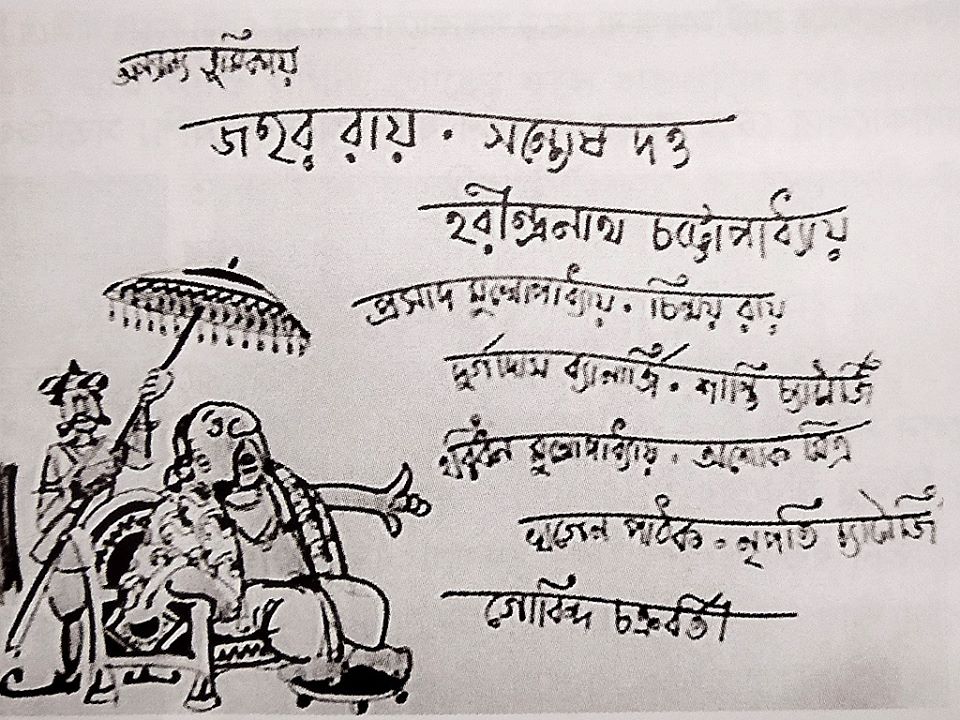 অন্যান্য ভূমিকায়
জহর রায় · সন্তোষ দত্ত
হরীন্দ্রনাথ চট্টোপাধ্যায়
প্রসাদ মুখোপাধ্যায় · চিন্ময় রায়
দুর্গাদাস ব্যানার্জি · শান্তি চ্যাটার্জি
হরিধন মুখোপাধ্যায় · অশোক মিত্র
খগেন পাঠক · নৃপতি চ্যাটার্জি
গোবিন্দ চক্রবর্তী